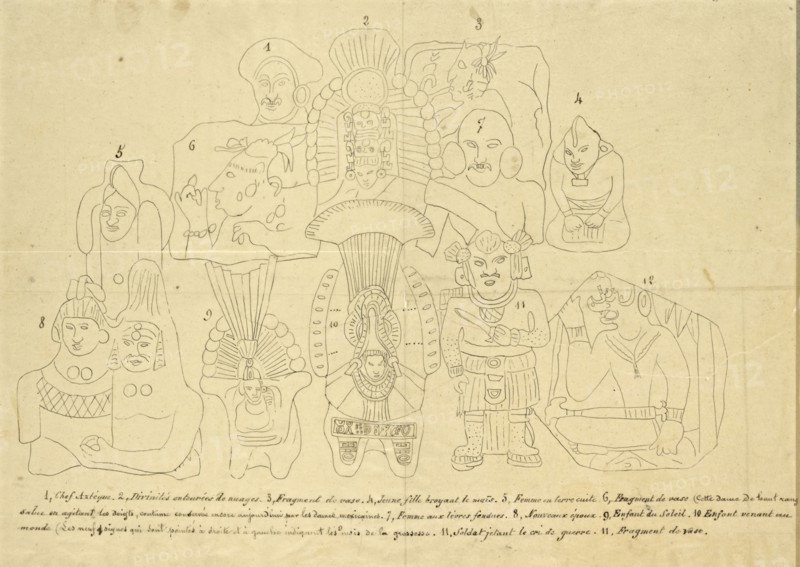 1
2
3
4
5
6
7
8
9
10
11
12
1, Chef Aztèque. 2, Divinités entourées de nuages. 3, Fragment de vase. 4, Jeune fille broyant le maïs. 5, Femme en terre cuite 6, Fragment de vase (Cette dame
salue en agitant les doigts, coutume conservée encore aujourd'hui par les dames mexicaines. 7, Femme aux lèvres fendues. 8, Nouveaux époux. 9, Enfant du Soleil. 10 Enfant venant au
monde (Les neuf signes qui sont à droite et à gauche indiquent les mois de la grossesse. 11, Soldat jetant le cri de guerre. 11, Fragment de vase.
PHOTO12